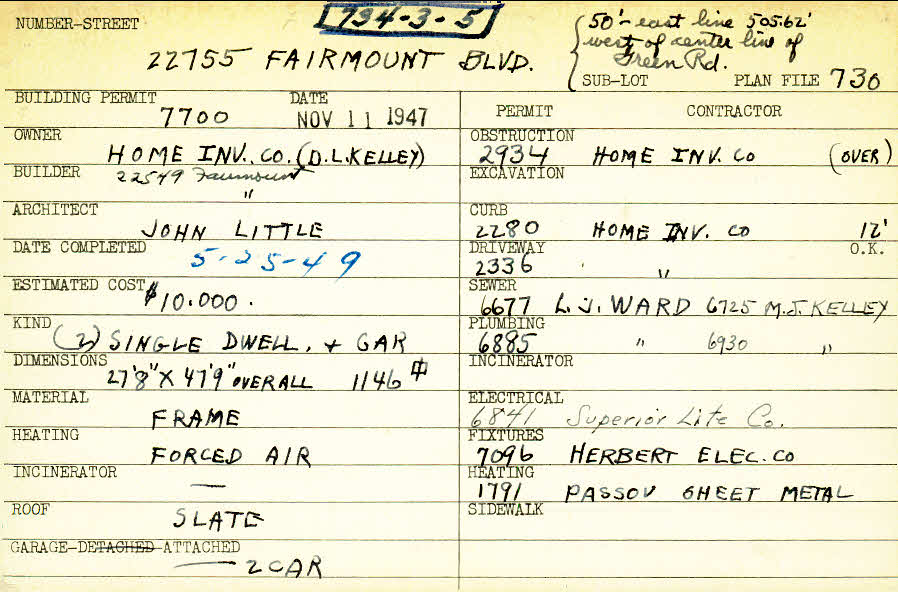 NUMBER-STREET
734-3-5
22755 FAIRMOUNT BLVD.
50'- east line 505.62'
west of center line of
Green Rd.
SUB-LOT PLAN FILE 730
BUILDING PERMIT DATE
7700 NOV 11 1947
OWNER
HOME INV. CO. (D.L.KELLEY)
BUILDER 22549 Fairmount
"
ARCHITECT
JOHN LITTLE
DATE COMPLETED
5-25-49
ESTIMATED COST $10.000.
KIND
(2) SINGLE DWELL. + GAR
DIMENSIONS
27'8" X 47'9" OVERALL 1146
MATERIAL
FRAME
HEATING
FORCED AIR
INCINERATOR
—
ROOF
SLATE
GARAGE-DETACHED-ATTACHED
— 2 CAR
PERMIT CONTRACTOR
OBSTRUCTION
2934 HOME INV. CO (OVER)
EXCAVATION
CURB
2280 HOME INV. CO 12'
DRIVEWAY O.K.
2336 "
SEWER
6677 L.J. WARD 6725 M.J. KELLEY
PLUMBING
6885 " 6930 "
INCINERATOR
ELECTRICAL
6841 Superior Lite Co.
FIXTURES
7096 HERBERT ELEC. CO
HEATING
1791 PASSOV SHEET METAL
SIDEWALK